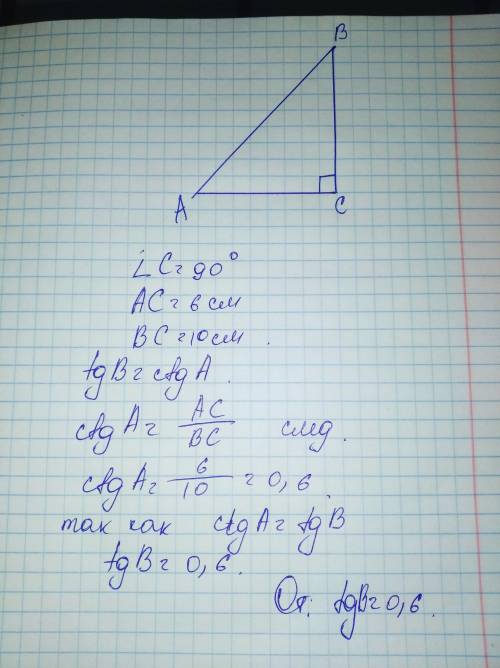 B
A
C
∠C = 90°
AC = 6 см
BC = 10 см.
tgB = ctgA.
ctgA = AC/BC след.
ctgA = 6/10 = 0,6.
так как ctgA = tgB
tgB = 0,6.
От: tgB = 0,6.